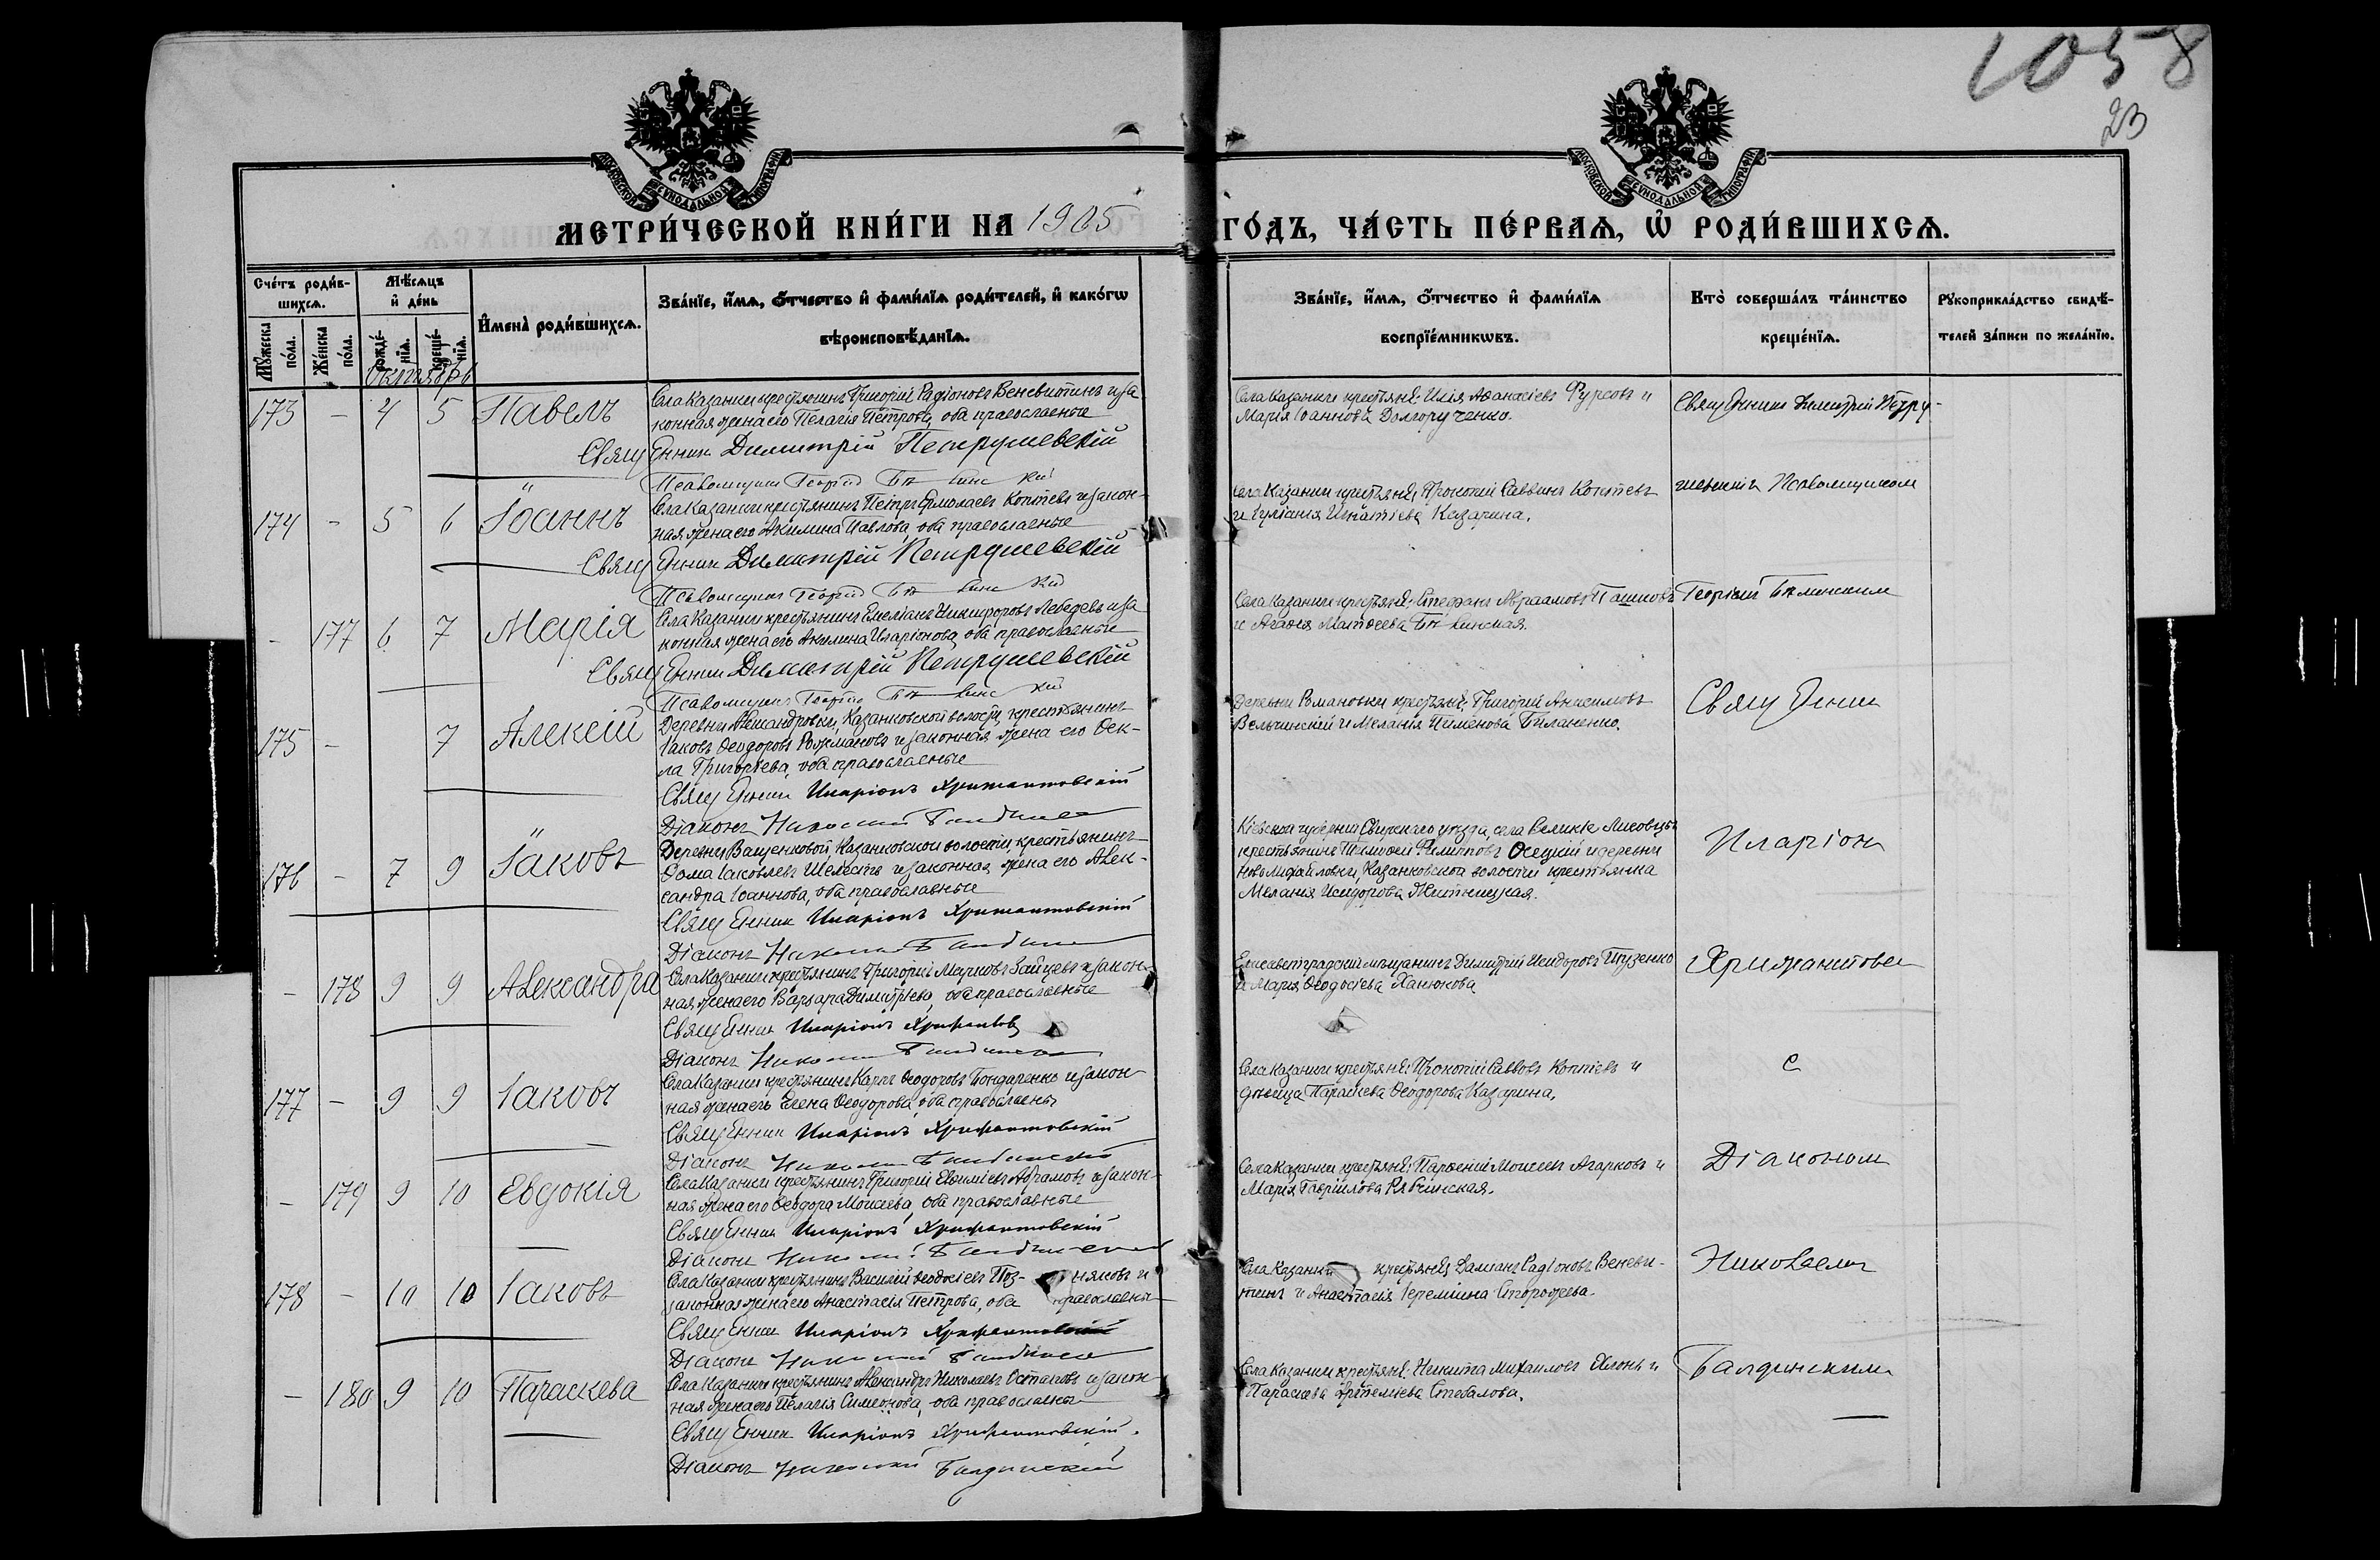 1058
23
МОСКОВСКОЙ СѴНОДАЛЬНОЙ ТИПОГРАФІИ
МОСКОВСКОЙ СѴНОДАЛЬНОЙ ТИПОГРАФІИ
МЕТРИ́ЧЕСКОЙ КНИ́ГИ НА 1905 ГО́ДЪ, ЧА́СТЬ ПЕ́РВАѦ, Ѽ РОДИ́ВШИХСѦ.
Сче́тъ роди́в-
шихсѧ.
Мꙋ́жеска по́ла.
Же́нска по́ла.
Мѣ́сѧцъ
и҆ де́нь
рожде́-нїѧ.
креще́-нїѧ.
И҆мена̀ роди́вшихсѧ.
Зва́нїе, и҆́мѧ, ѻ҆́тчество и҆ фами́лїѧ роди́телей, и҆ како́гѡ
вѣроисповѣ́данїѧ.
Зва́нїе, и҆́мѧ, ѻ҆́тчество и҆ фами́лїѧ
воспрїе́мникѡвъ.
Кто̀ соверша́лъ та́инство
креще́нїѧ.
Рꙋкоприкла́дство свидѣ́-
телей за́писи по жела́нїю.
Октябрь
173 - 4 5 Павелъ
Села Казанки крестьянинъ Григорій Радіоновъ Веневитинъ и за
конная жена его Пелагія Петрова, оба православные
Священник Димитрій Петрушевскій
Псаломщик Георгій
Села Казанки крестьяне: Илія Аѳанасіевъ Фурсовъ и
Марія Іоаннова Долгорученко.
Священник Димитрій Петру-
174 - 5 6 Іоаннъ
Села Казанки крестьянинъ Петръ Ермолаевъ Коптевъ и закон-
ная жена его Акилина Павлова, оба православные
Священник Димитрій Петрушевскій
Псаломщик Георгій
Села Казанки крестьяне: Прокопій Саввинъ Коптевъ
и Іуліанія Игнатіева Казарина.
шевскій Псаломщиком
- 177 6 7 Марія
Села Казанки крестьянинъ Емеліанъ Никифоровъ Лебедевъ и за
конная жена его Акилина Иларіонова, оба православные
Священник Димитрій Петрушевскій
Псаломщик Георгій
Села Казанки крестьяне: Стефанъ Авраамовъ Пашковъ
и Агаѳія Матѳеева
Георгіем
175 - 7 Алексій
Деревни Александровки, Казанковской волости, крестьянинъ
Іаковъ Ѳеодоровъ Рожмановъ и законная жена его Ѳек-
ла Григорьева, оба православные
Священник Иларіонъ Хрисантовскій
Діаконъ Николай
Деревни Романовки крестьяне: Григорій Анисимовъ
Вельчинскій и Меланія Пименова Биланенко.
Священник
176 - 7 9 Іаковъ
Деревни Ващенковой, Казанковской волости, крестьянинъ
Ѳома Іаковлевъ Шелестъ и законная жена его Алек-
сандра Іоаннова, оба православные
Священник Иларіонъ Хрисантовскій
Діаконъ Николай
Кіевской губерніи уезда, села Великіе Лисовцы
крестьянинъ Тимоѳей Филипповъ Осецкій и деревни
Ново Михайловки, Казанковской волости крестьянка
Меланія Исидорова Житницкая.
Иларіон
- 178 9 9 Александра
Села Казанки крестьянинъ Григорій Марковъ Зайцевъ и закон-
ная жена его Варвара Димитріева, оба православные
Священник Иларіонъ
Діаконъ Николай
Елисаветградскій мещанинъ Димитрій Исидоровъ Пузенко
и Марія Ѳеодосіева Ханюкова
177 - 9 9 Іаковъ
Села Казанки крестьянинъ Карпъ Ѳеодоровъ Бондаренко и закон
ная жена его Елена Ѳеодорова, оба православны
Священник Иларіонъ Хрисантовскій
Діаконъ Николай
Села Казанки крестьяне: Прокопій Саввовъ Коптевъ и
девица Параскева Ѳеодорова Казарина.
с
- 179 9 10 Евдокія
Села Казанки крестьянинъ Григорій Евѳиміевъ Абрамовъ и закон-
ная жена его Ѳеодора Моисеева, оба православные
Священник Иларіонъ Хрисантовскій
Діакон Николай
Села Казанки крестьяне: Парѳеній Моисеевъ Агарковъ и
Марія Гавріилова Рябчинская.
Діаконом
178 - 10 10 Іаковъ
Села Казанки крестьянинъ Василій Ѳеодосіевъ Поз- няковъ и
законная жена его Анастасія Петрова, оба православны
Священник Иларіонъ Хрисантовскій
Діакон Николай
Села Казанки крестьяне: Даміанъ Радіоновъ Веневи-
тинъ и Анастасія Іереміина Сторожева.
Николаем
- 180 9 10 Параскева
Села Казанки крестьянинъ Александръ Николаевъ Остаповъ и закон
ная жена его Пелагія Симеонова, оба православные
Священник Иларіонъ Хрисантовскій.
Діаконъ Николай Балдинскій
Села Казанки крестьяне: Никита Михаиловъ и
Параскева Артеміева Стебалова.
Балдинским